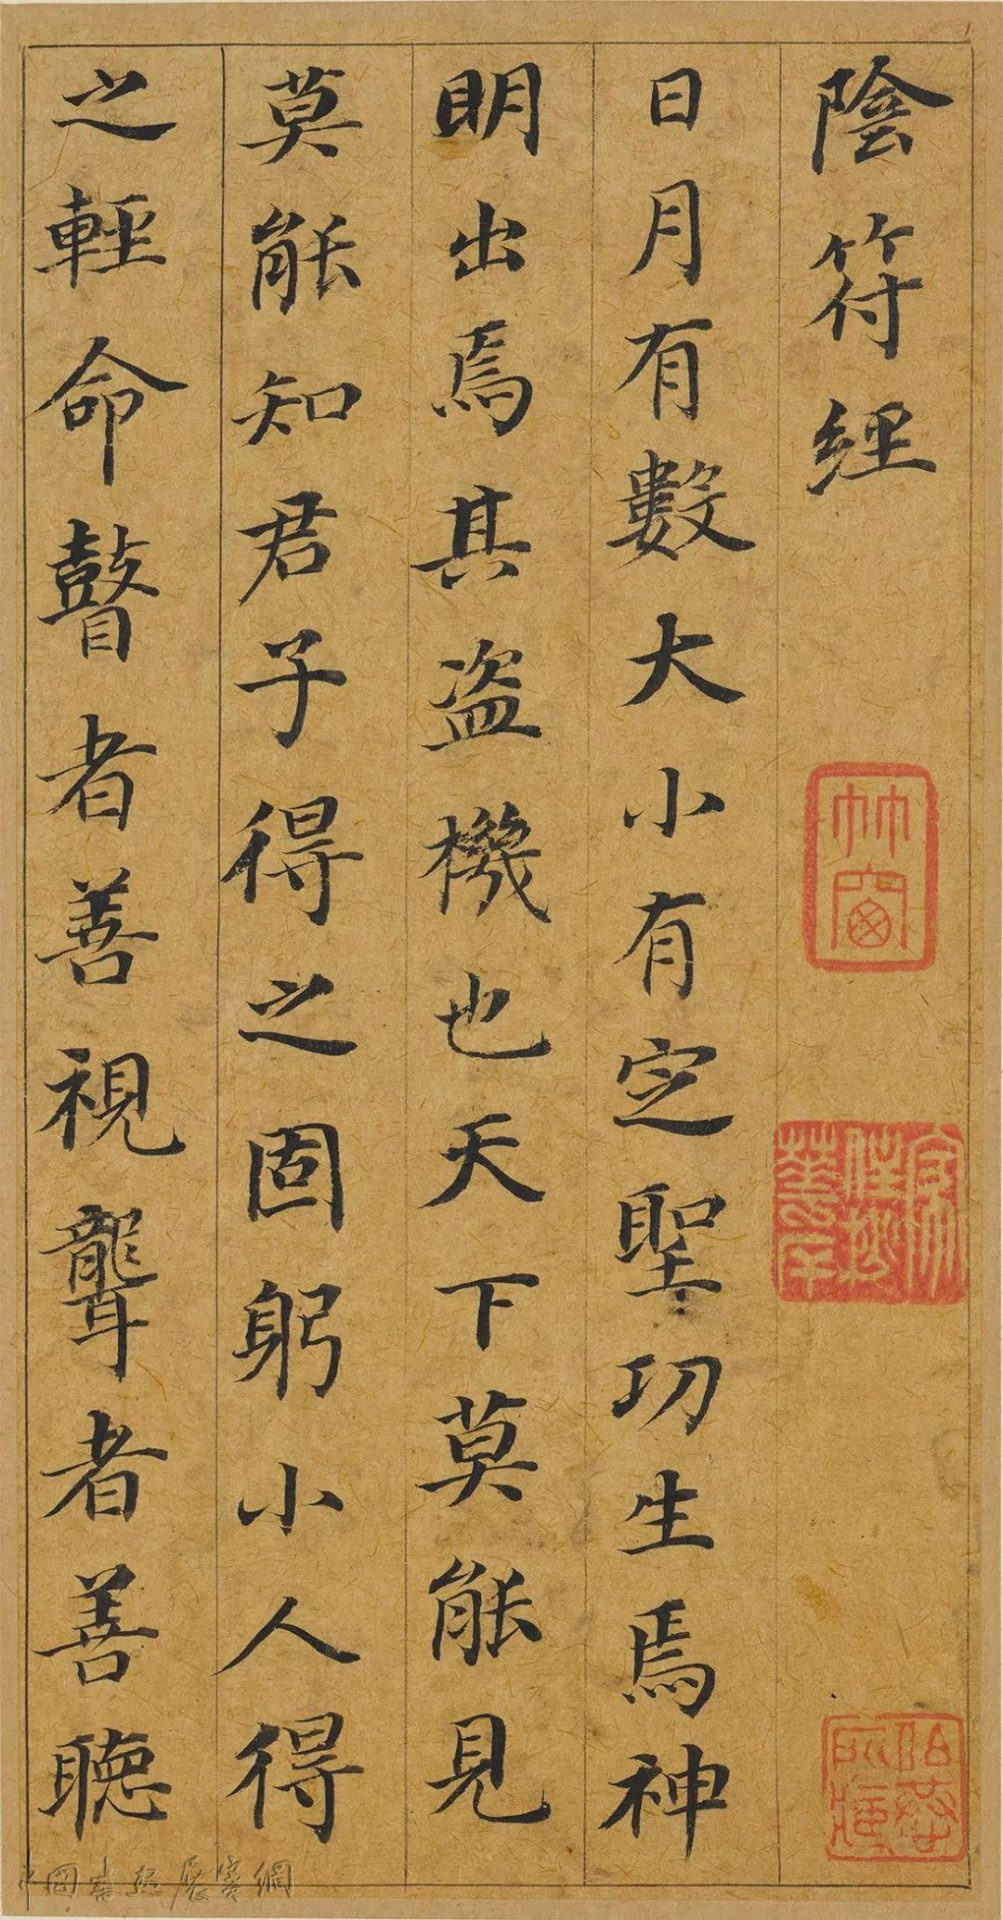 陰符經
日月有數大小有定聖功生焉神
明出焉其盜機也天下莫能見
莫能知君子得之固躬小人得
之輕命瞽者善視聾者善聽
竹窗